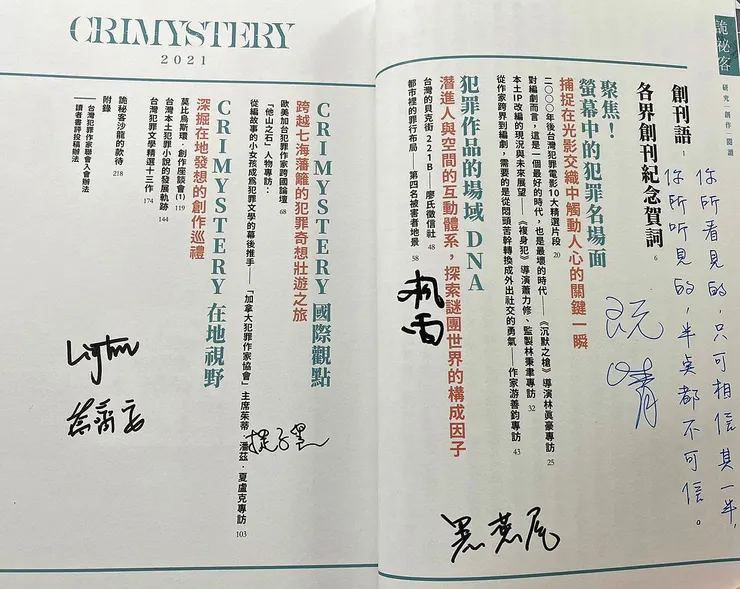 詭祕客
研究|創作|閱讀
你所看見的,只可相信其一半,
你所聽見的,半點都不可信。
創刊語-
各界創刊紀念賀詞 6
聚焦!
螢幕中的犯罪名場面
捕捉在光影交織中觸動人心的關鍵一瞬
二〇〇〇年後台灣犯罪電影10大精選片段 20
對編劇而言,這是一個最好的時代,也是最壞的時代——《沉默之槍》導演林真豪專訪 25
本土IP改編的現況與未來展望——《複身犯》導演蕭力修、監製林秉聿專訪 32
從作家跨界到編劇,需要的是從悶頭苦幹轉換成外出社交的勇氣——作家游善鈞專訪 43
犯罪作品的場域 DNA
潛進人與空間的互動體系,探索謎團世界的構成因子
台灣的貝克街 221B——廖氏徵信社 48
都市裡的罪行布局——第四名被害者地景 58
CRIMYSTERY
2021
CRIMYSTERY 國際觀點
跨越七海藩籬的犯罪奇想壯遊之旅
歐美加台犯罪作家跨國論壇 68
「他山之石」人物專訪:
從編故事的小女孩成為犯罪文學的幕後推手——「加拿大犯罪作家協會」主席茱蒂・潘茲・夏盧克專訪 103
CRIMYSTERY 在地視野
深掘在地發想的創作巡禮
莫比烏斯環・創作座談會(1) 119
台灣本土犯罪小說的發展軌跡 144
台灣犯罪文學精選十三作 174
詭秘客沙龍的款待 218
附錄
台灣犯罪作家聯會入會辦法
讀者書評投稿辦法
提子墨
黑燕尾